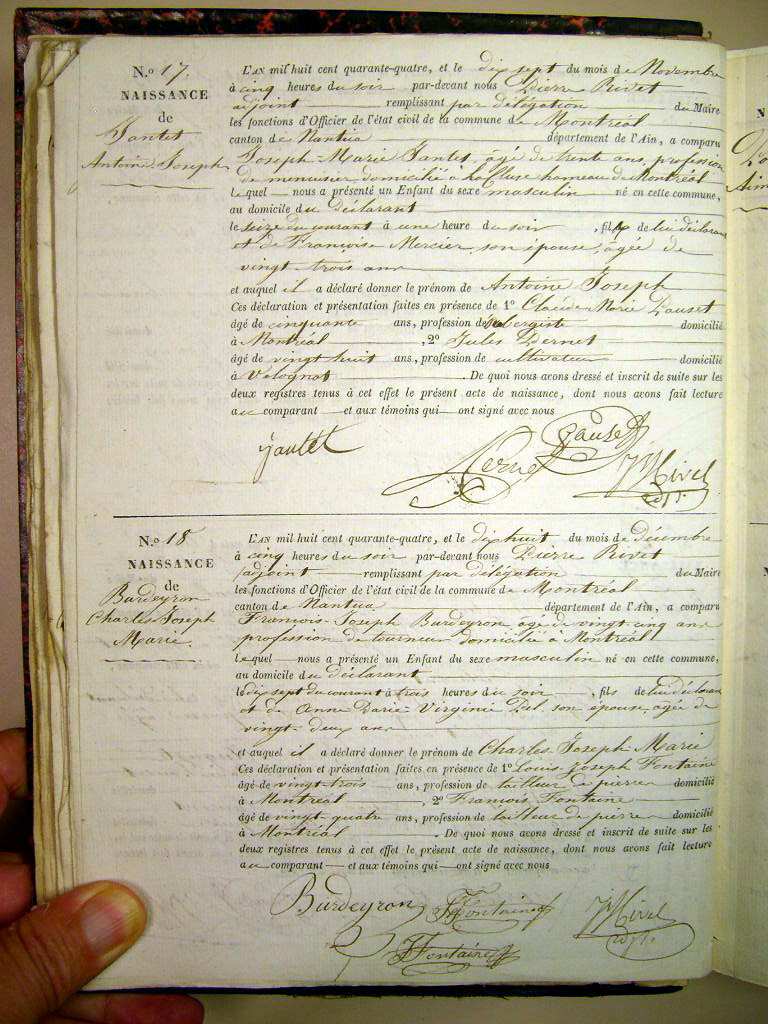 N.o 17.
NAISSANCE
de
Jantet
Antoine Joseph
L'AN mil huit cent quarante-quatre, et le dix sept du mois de Novembre
à cinq heures du soir par-devant nous Pierre Rivet
adjoint remplissant par délégation du Maire
les fonctions d'Officier de l'état civil de la commune de Montréal
canton de Nantua département de l'Ain, a comparu
Joseph-Marie Jantet, âgé de trente ans, profession
de menuisier domicilié à La Cluse hameau de Montréal
lequel nous a présenté un Enfant du sexe masculin né en cette commune,
au domicile du déclarant
le seize du courant à une heure du soir, fils de lui déclarant
et de Françoise Mercier, son épouse, âgée de
vingt-trois ans
et auquel il a déclaré donner le prénom de Antoine Joseph
Ces déclaration et présentation faites en présence de 1o Claude Marie
âgé de cinquante ans, profession d'aubergiste domicilié
à Montréal, 2o Jules Pernet
âgé de vingt huit ans, profession de cultivateur domicilié
à Volognat. De quoi nous avons dressé et inscrit de suite sur les
deux registres tenus à cet effet le présent acte de naissance, dont nous avons fait lecture
au comparant et aux témoins qui ont signé avec nous
Jantet
Pernet
Rivet
N.o 18
NAISSANCE
de
Burdeyron
Charles Joseph
Marie.
L'AN mil huit cent quarante-quatre, et le dix huit du mois de Décembre
à cinq heures du soir par-devant nous Pierre Rivet
adjoint remplissant par délégation du Maire
les fonctions d'Officier de l'état civil de la commune de Montréal
canton de Nantua département de l'Ain, a comparu
François-Joseph Burdeyron âgé de vingt cinq ans
profession de tourneur domicilié à Montréal
lequel nous a présenté un Enfant du sexe masculin né en cette commune,
au domicile du déclarant
le dix sept du courant à trois heures du soir, fils de lui déclarant
et de Anne Marie-Virginie son épouse, âgée de
vingt-deux ans
et auquel il a déclaré donner le prénom de Charles-Joseph-Marie
Ces déclaration et présentation faites en présence de 1o Louis-Joseph Fontaine
âgé de vingt-trois ans, profession de tailleur de pierre domicilié
à Montréal, 2o François Fontaine
âgé de vingt-quatre ans, profession de tailleur de pierre domicilié
à Montréal. De quoi nous avons dressé et inscrit de suite sur les
deux registres tenus à cet effet le présent acte de naissance, dont nous avons fait lecture
au comparant et aux témoins qui ont signé avec nous
Burdeyron Fontaine Rivet
Fontaine